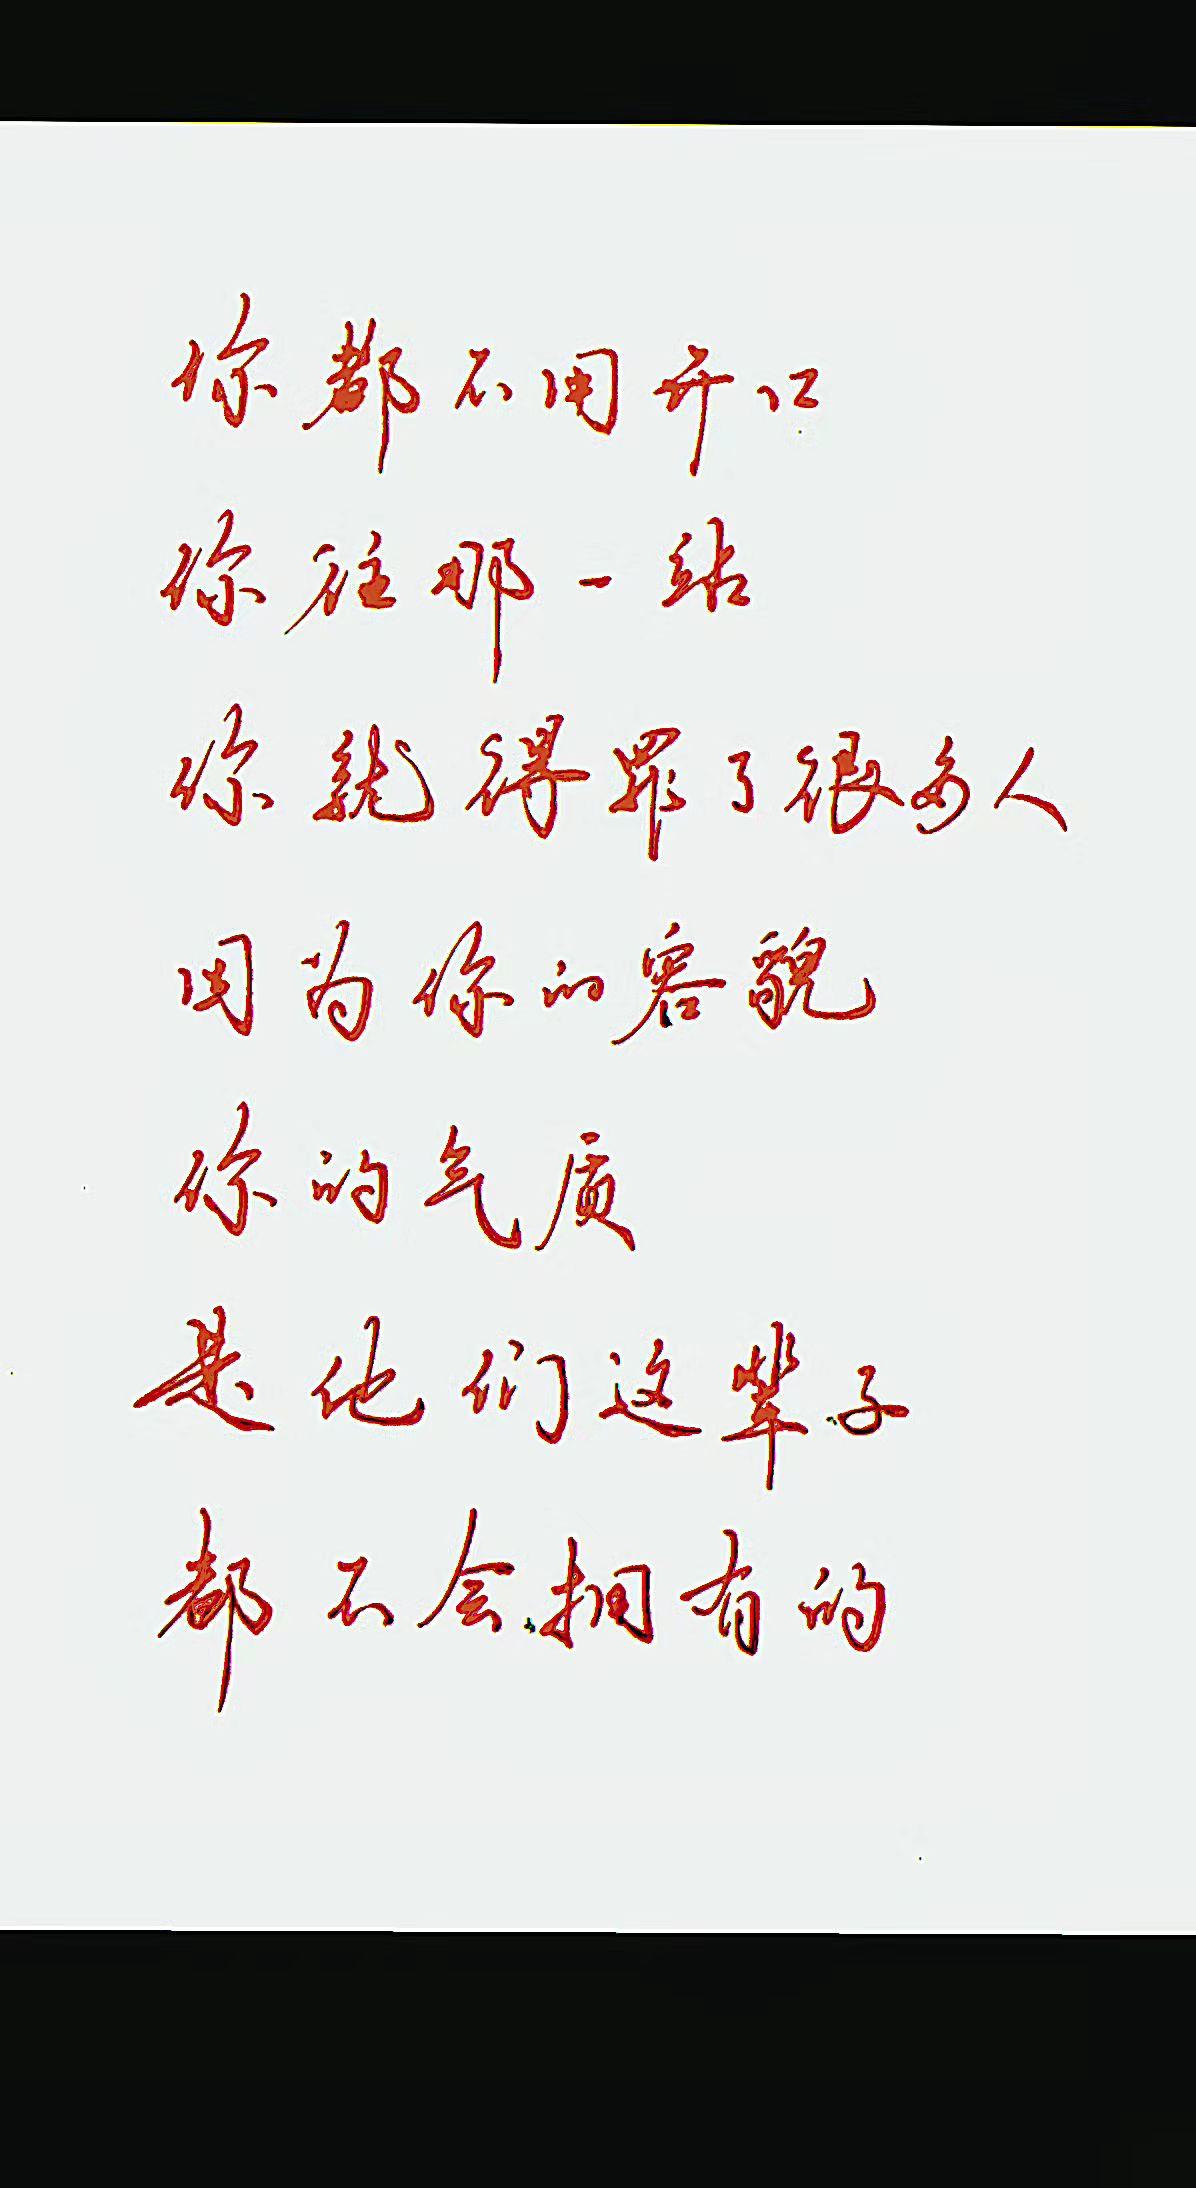 你都不用开口
你往那一站
你就得罪了很多人
因为你的容貌
你的气质
是他们这辈子
都不会拥有的